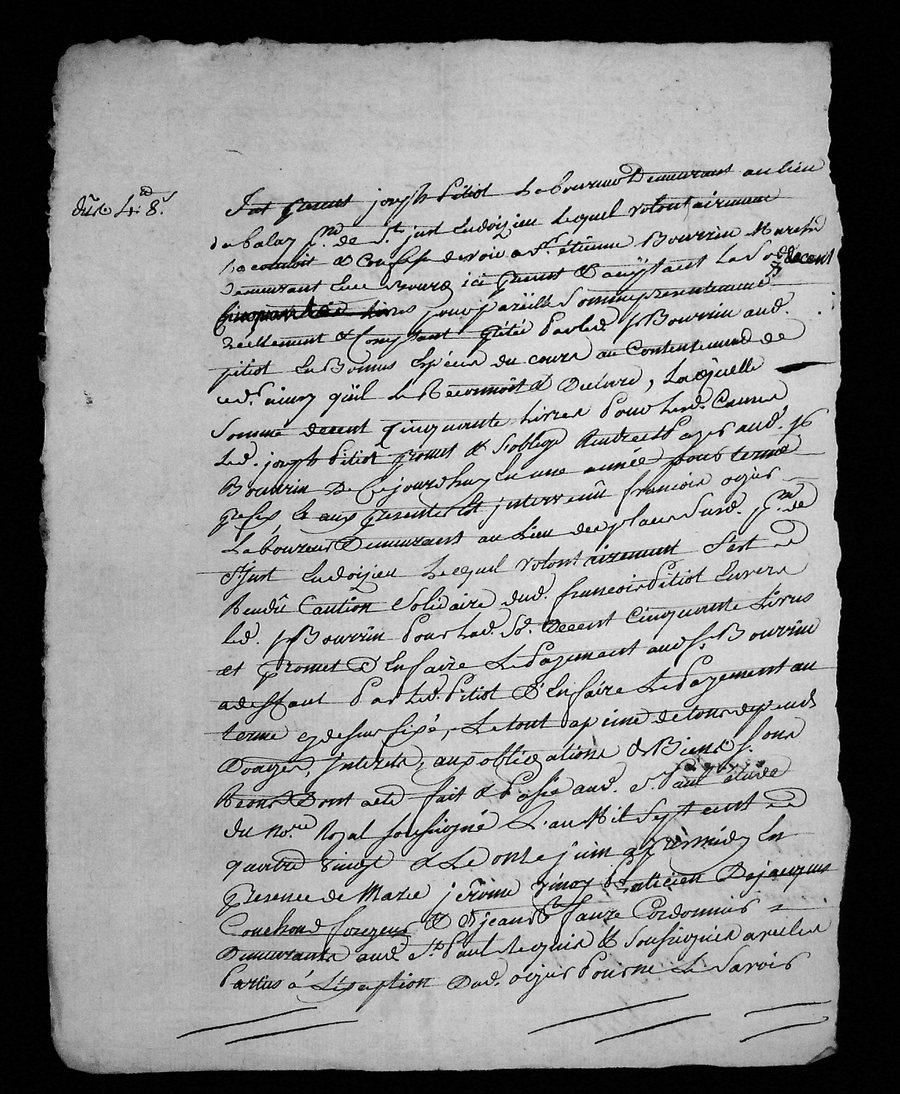 fut présent joseph Pitiot Laboureur Demeurant au lieu
du balay psse de St just Ludoizieu Lequel volontairement
reconnoit & Confesse devoir a Sr étienne Bourrin March
demeurant Lieu ici présent & acceptant La So de cent
Cinquante Livres pour pareille Somme présentement
réellement & Comptant prêtée Par led. Sr Bourrin aud.
pitiot En Bonnes Espèces du cours au Contentement de
ced. ainsy qu'il Le Reconnoit & Declare, Laquelle
Somme de cent Cinquante Livres Pour Lesd. Causes
Led. joseph Pitiot promet & s'oblige Rendre & Payer aud. Sr
Bourrin De Cejourdhuy En une année Pour terme
préfix Le aux présentes est intervenû françois ogier
Laboureur Demeurant au Lieu de Susd. psse de
St just Ludoizieu Lequel volontairement S'est
Rendû Caution Solidaire dud. françois Pitiot Envers
Led. Sr Bourrin Pour Lad. So. de cent Cinquante Livres
et promet d'En faire Le Payement aud. Sr Bourrin
a deffaut Par Led. Pitiot d'En faire Le Payement au
terme cydessus fixé, Le tout a peine de tous depends
Domages, Interets, aux obligations de Biens, Sous
Renon. Dont acte fait & Passé aud. St Paul étude
du Nore Royal Soussigné L'an Mil Sept cent
quatre vingt & Le onze juin apres midy En
présence de Marie jérôme vinoy praticien De jacques
Couchoud & de jean Bte faure Cordonnier
Demeurants aud. St Paul Requis & Soussignés avec les
Parties à L'exeption Dud. ogier Pour ne Le Savoir